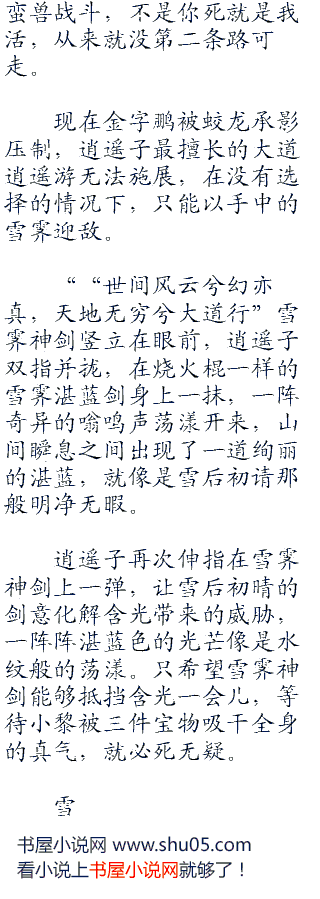 蛮兽战斗，不是你死就是我
活，从来就没第二条路可
走。
现在金字鹏被蛟龙承影
压制，逍遥子最擅长的大道
逍遥游无法施展，在没有选
择的情况下，只能以手中的
雪霁迎敌。
““世间风云兮幻亦
真，天地无穷兮大道行”雪
霁神剑竖立在眼前，逍遥子
双指并拢，在烧火棍一样的
雪霁湛蓝剑身上一抹，一阵
奇异的嗡鸣声荡漾开来，山
间瞬息之间出现了一道绚丽
的湛蓝，就像是雪后初请那
般明净无暇。
逍遥子再次伸指在雪霁
神剑上一弹，让雪后初晴的
剑意化解含光带来的威胁，
一阵阵湛蓝色的光芒像是水
纹般的荡漾。只希望雪霁神
剑能够抵挡含光一会儿，等
待小黎被三件宝物吸干全身
的真气，就必死无疑。
雪
书屋小说网 www.shu05.com
看小说上书屋小说网就够了！